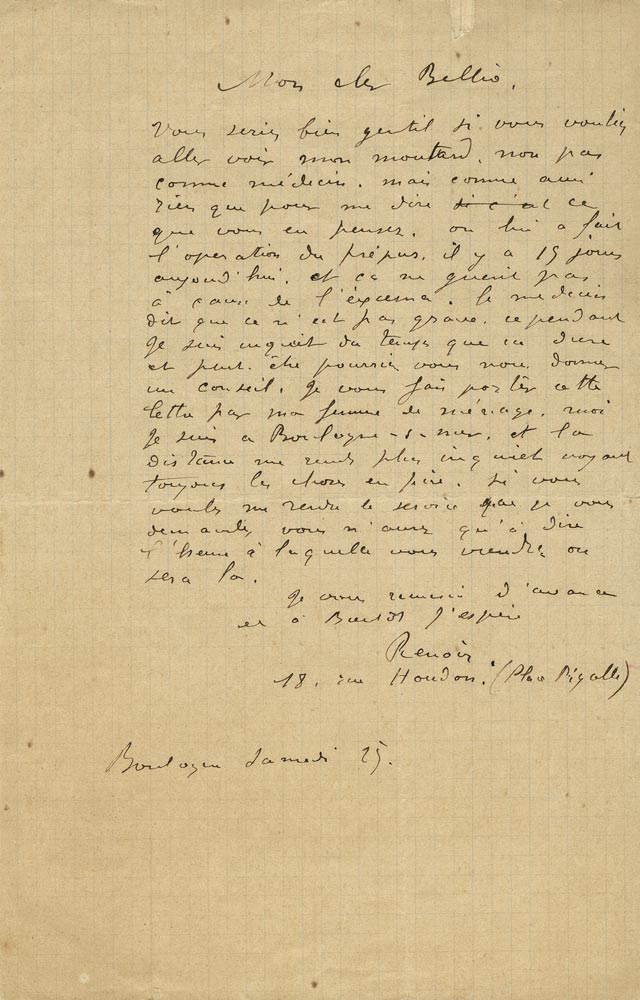 Mon cher Bellio,
Vous seriez bien gentil si vous vouliez
aller voir mon moutard, non pas
comme médecin. mais comme ami
rien que pour me dire si c'est ce
que vous en pensez. on lui a fait
l'operation du prépuce. il y a 15 jours
aujourd'hui. et ca ne guerit pas
à cause de l'éxcema. le medecin
dit que ce n'est pas grave. cependant
je suis inquiet du temps que ca dure
et peut être pourriez vous nous donner
un conseil. je vous fais porter cette
lettre par ma femme de ménage. moi
je suis a Boulogne-s-mer. et la
distance me rends plus inquiet voyant
toujours les choses en pire. si vous
voulez me rendre le service que je vous
demande, vous n'aurez qu'à dire
l'heure à laquelle vous viendrez on
sera la.
je vous remercie d'avance
et à Bientôt j'espère
Renoir
18. rue Houdon. (Place Pigalle)
Boulogne Samedi 25.